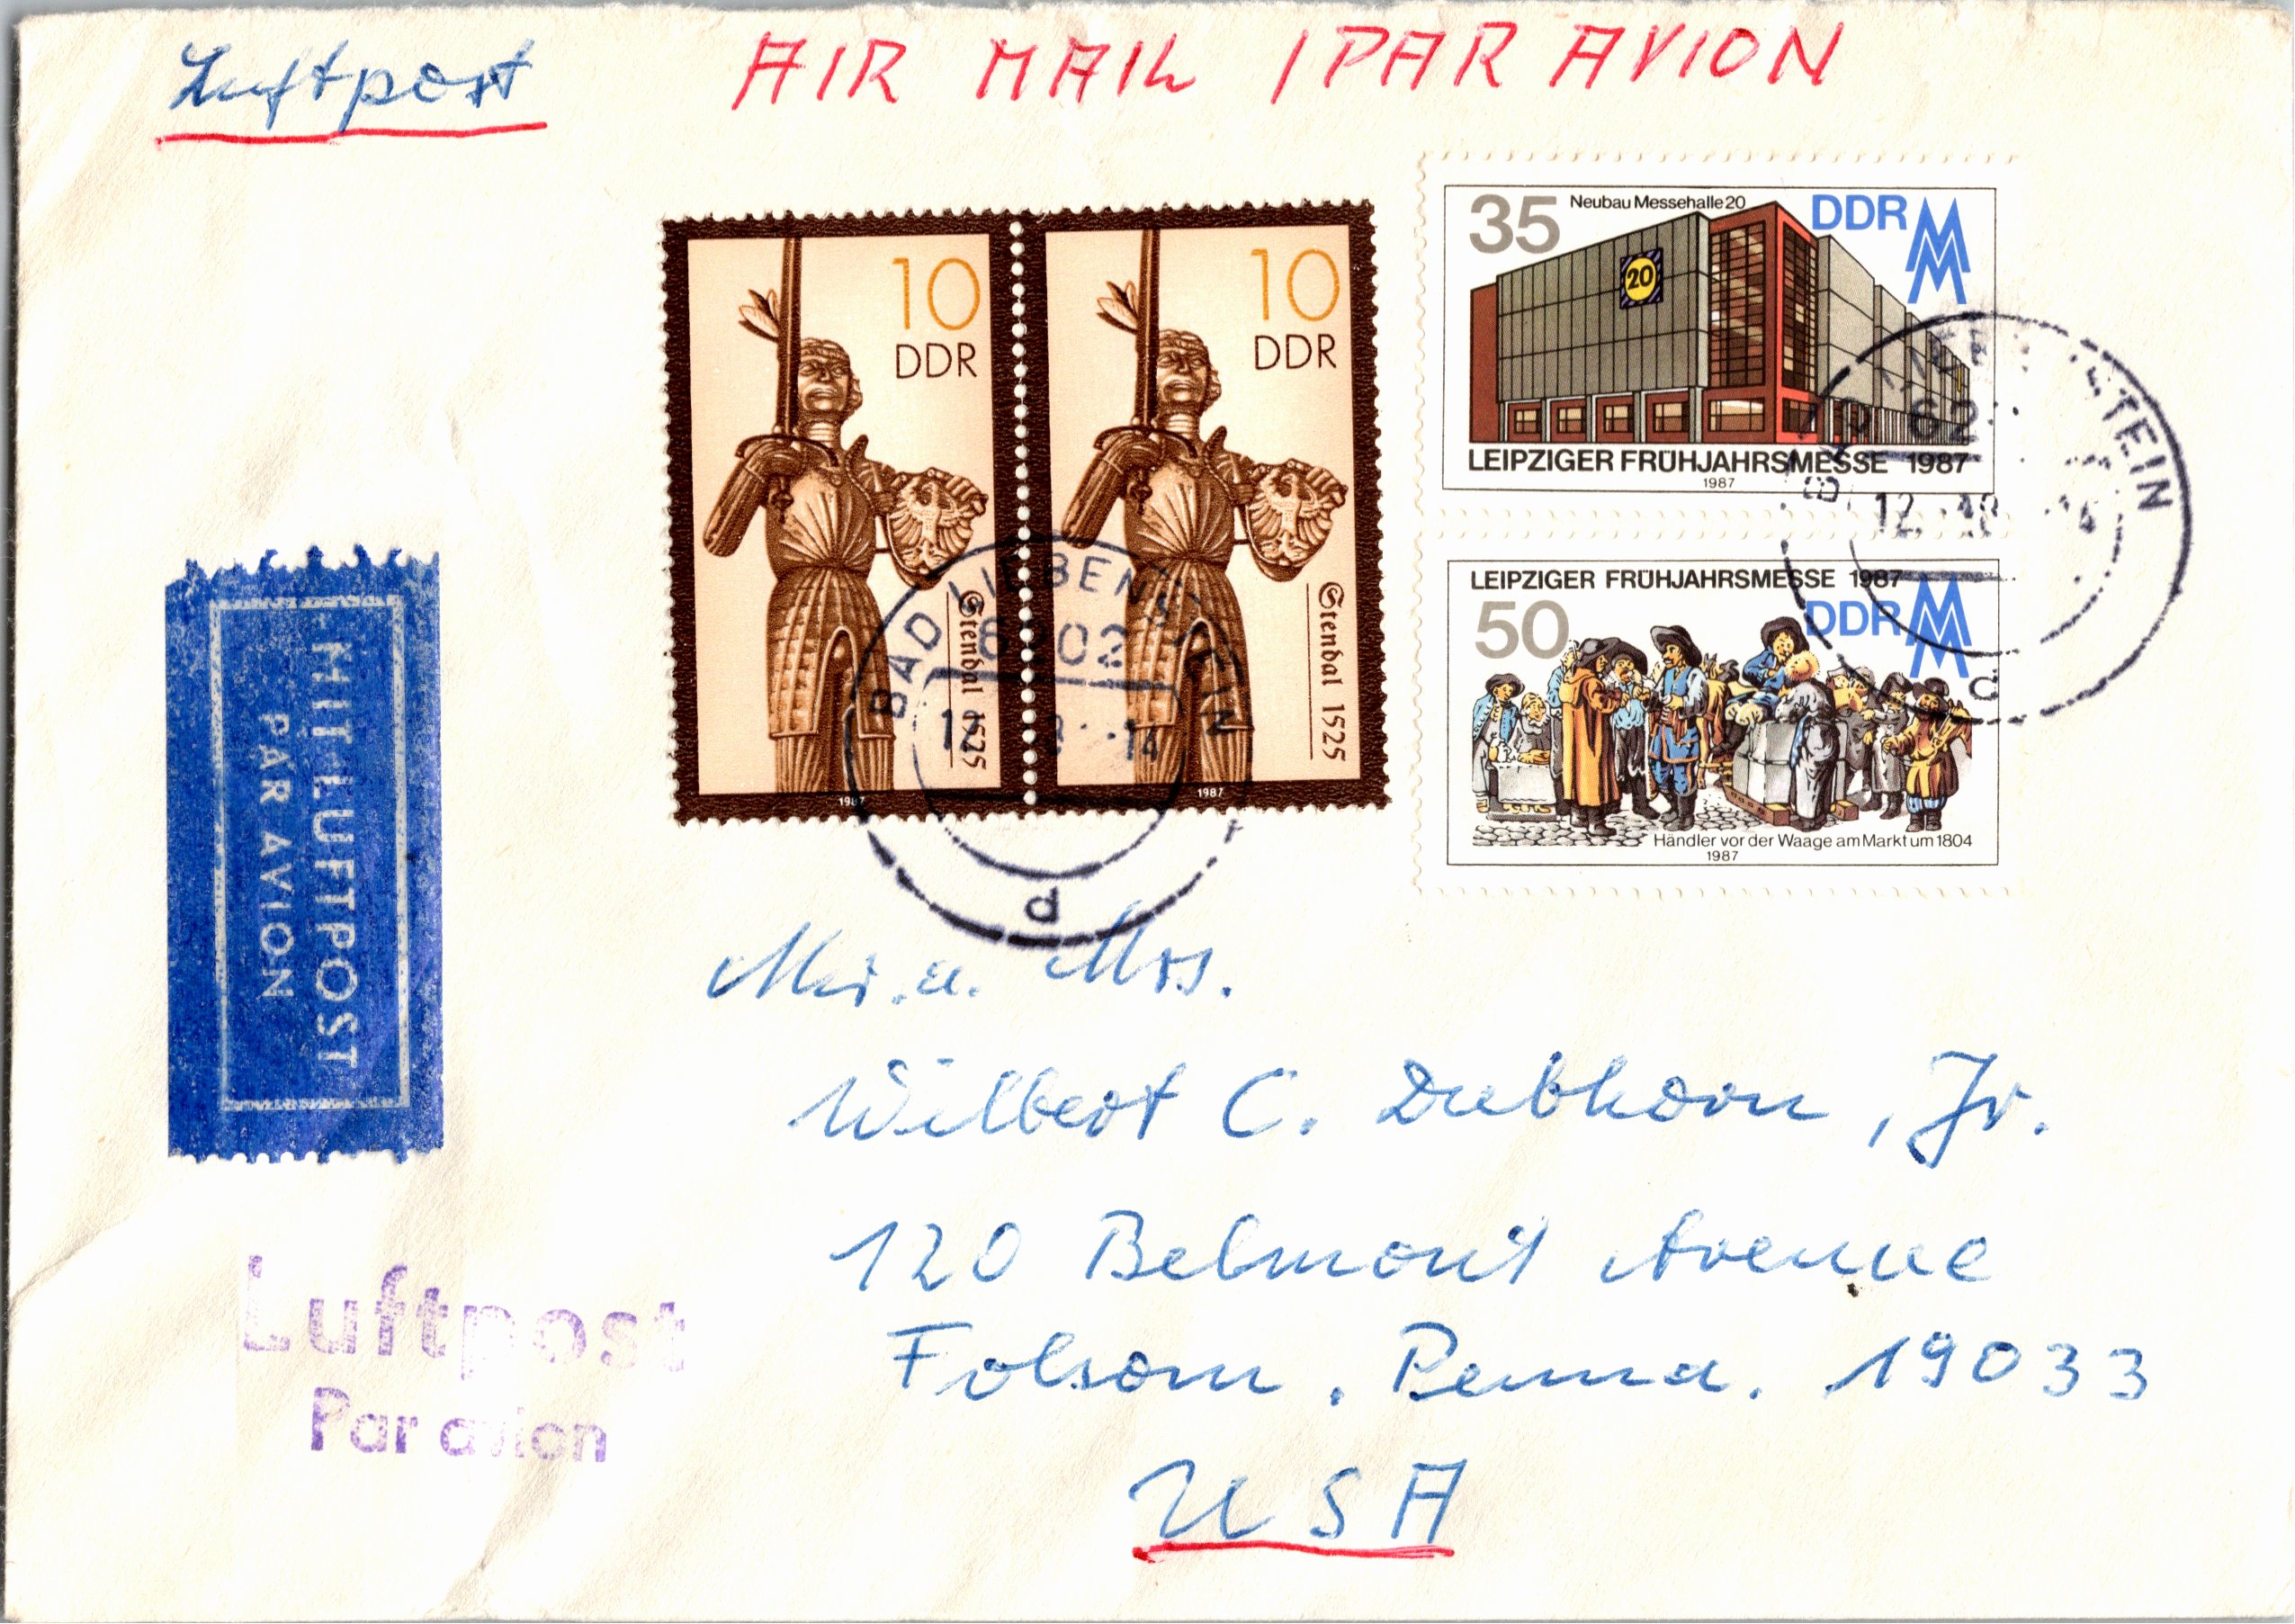 Luftpost
AIR MAIL / PAR AVION
10
DDR
Stendal 1525
1987
10
DDR
Stendal 1525
1987
35
Neubau Messehalle 20
DDR
MM
20
LEIPZIGER FRÜHJAHRSMESSE 1987
1987
LEIPZIGER FRÜHJAHRSMESSE 1987
50
DDR
MM
Händler vor der Waage am Markt um 1804
1987
BAD LIEBENSTEIN
6202
d
BAD LIEBENSTEIN
c
MIT LUFTPOST
PAR AVION
Mr. u. Mrs.
Wilbert C. Dubhorn, Jr.
120 Belmont Avenue
Folsom, Penna. 19033
USA
Luftpost
Par avion